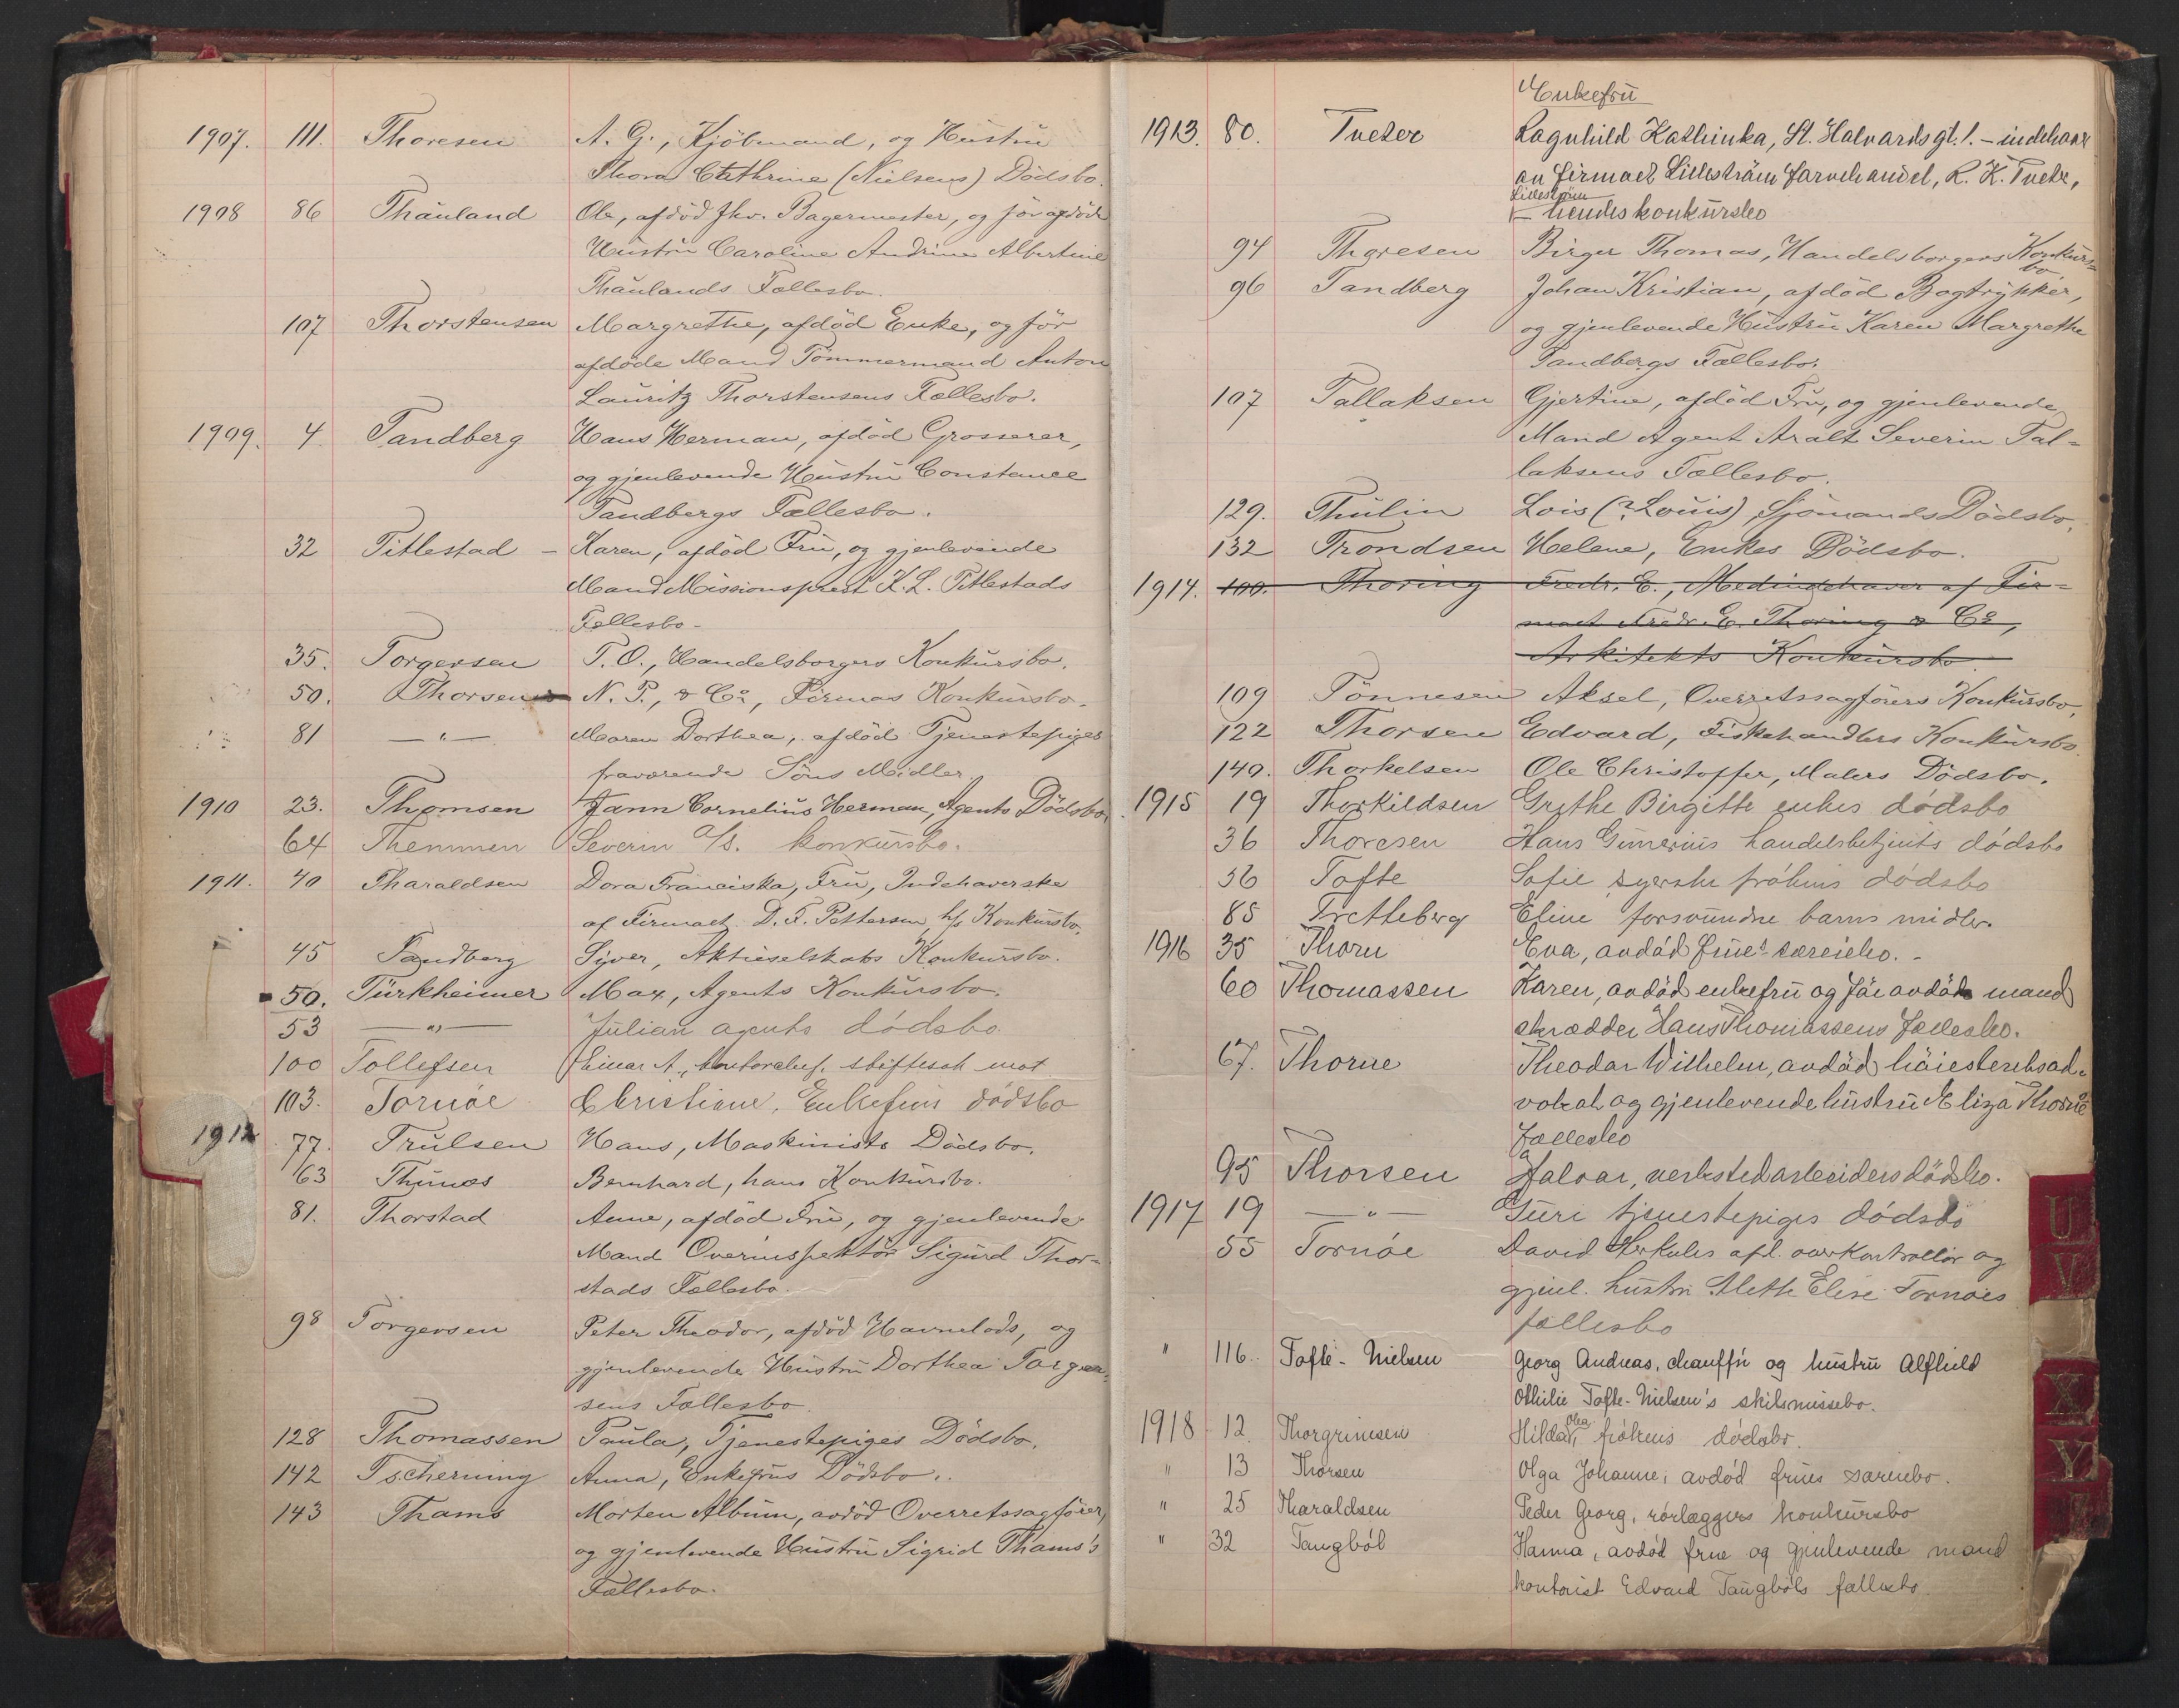 1907. 111. Thoresen A. G., Kjöbmand, og Hustru
Thora Cathrine (Nielsens) Dödsbo.
1908 86 Thauland Ole, afdöd fhv. Bagermester, og för afdöde
Hustru Caroline Andrine Albertine
Thaulands Fællesbo.
107 Thorstensen Margrethe, afdöd Enke, og för
afdöde Mand Tömmermand Anton
Lauritz Thorstensens Fællesbo.
1909. 4. Tandberg Hans Herman, afdöd Grosserer,
og gjenlevende Hustru Constance
Tandbergs Fællesbo.
32 Titlestad - Karen, afdöd Fru, og gjenlevende
Mand Missionsprest K. L. Titlestads
Fællesbo -
35. Torgersen T. O., Handelsborgers Konkursbo.
50. Thorsen N. P., & Co, Firmas Konkursbo.
81 — " — Maren Dorthea, afdöd Tjenestepiges
fraværende Söns Midler
1910 23. Thomsen Jann Cornelius Herman, Agents Dödsbo
64 Themmen Severin A/S. konkursbo.
1911. 40 Tharaldsen Dora Franciska, Fru, Indehaverske
af Firmaet D. F. Pettersen, h/s Konkursbo.
45 Tandberg Syver, Aktieselskabs Konkursbo.
50. Türkheimer Max, Agents Konkursbo.
53 — " — Julian agents dödsbo
100 Tollefsen Einar A., kontorchef, skiftesak mot
103. Tornöe Christiane, Enkefrus dödsbo
1912 77. Trulsen Hans, Maskinists Dödsbo.
63 Thunes Bernhard, hans Konkursbo.
81. Thorstad Anne, afdöd Fru, og gjenlevende
Mand Overinspektör Sigurd Thor-
stads Fællesbo.
98 Torgersen Peter Theodor, afdöd Havnelods, og
gjenlevende Hustru Dorthea Torger-
sens Fællesbo.
128 Thomassen Paula, Tjenestepiges Dödsbo.
142 Tscherning Anna, Enkefrus Dödsbo.
143 Thams Morten Album, avdöd Overretssagförer,
og gjenlevende Hustru Sigrid Thams's
Fællesbo.
Enkefru
1913. 80. Tveter Ragnhild Kathinka, St. Halvards gt. 1. – indehaver
av firmaet Lilleström farvehandel, R. K. Tveter,
Lilleström
– hendes konkursbo
94 Thoresen Birger Thomas, Handelsborgers Konkurs-
bo.
96 Tandberg Johan Kristian, afdöd Bogtrykker,
og gjenlevende Hustru Karen Margrethe
Tandbergs Fællesbo.
107 Tallaksen Gjertine, afdöd Fru, og gjenlevende
Mand Agent Aralt Severin Tal-
laksens Fællesbo.
129. Thulin Lois (? Louis) Sjömands Dödsbo.
132 Trondsen Helene, Enkes Dödsbo.
1914. 100. Thoring Fredr. E., Medindehaver af Fir-
maet Fredr. E. Thoring & Co,
Arkitekts Konkursbo
109 Tönnesen Aksel, Overretssagförers Konkursbo.
122 Thorsen Edvard, Fiskehandlers Konkursbo
140. Thorkelsen Ole Christoffer, Malers Dödsbo.
1915 19 Thorkildsen Grethe Birgitte enkes dödsbo
36 Thoresen Hans Gunerius handelsbetjents dödsbo
56 Tofte Sofie syerske frökens dödsbo
85 Tretteberg Eline forsvundne barns midler.
1916 35 Thorn Eva, avdöd frues særeiebo. -
60 Thomassen Karen, avdöd enkefru og för avdöde mand
skrædder Hans Thomassens fællesbo.
67. Thorne Theodor Wilhelm, avdöd höiesteretsad-
vokat og gjenlevende hustru Eliza Thornes
fællesbo
95 Thorsen Halvar, verkstedarbeiders dödsbo.
1917 19 — " — Guri tjenestepiges dödsbo
55 Tornöe David Herkules afd. overkontrollör og
gjenl. hustru Mette Elise Tornöes
fællesbo
" 116. Tofte-Nielsen Georg Andreas, chauffør og hustru Alfhild
Othilie Tofte-Nielsen's skilsmissebo.
1918 12. Thorgrimsen Hilda Olea, frökens dödsbo.
" 13 Thorsen Olga Johanne, avdöd frues særeiebo.
" 25 Tharaldsen Peder Georg, rörlæggers konkursbo
" 32 Tangböl Hanna, avdöd frue og gjenlevende mand
kontorist Edvard Tangböls fællesbo
U
V
X
Y